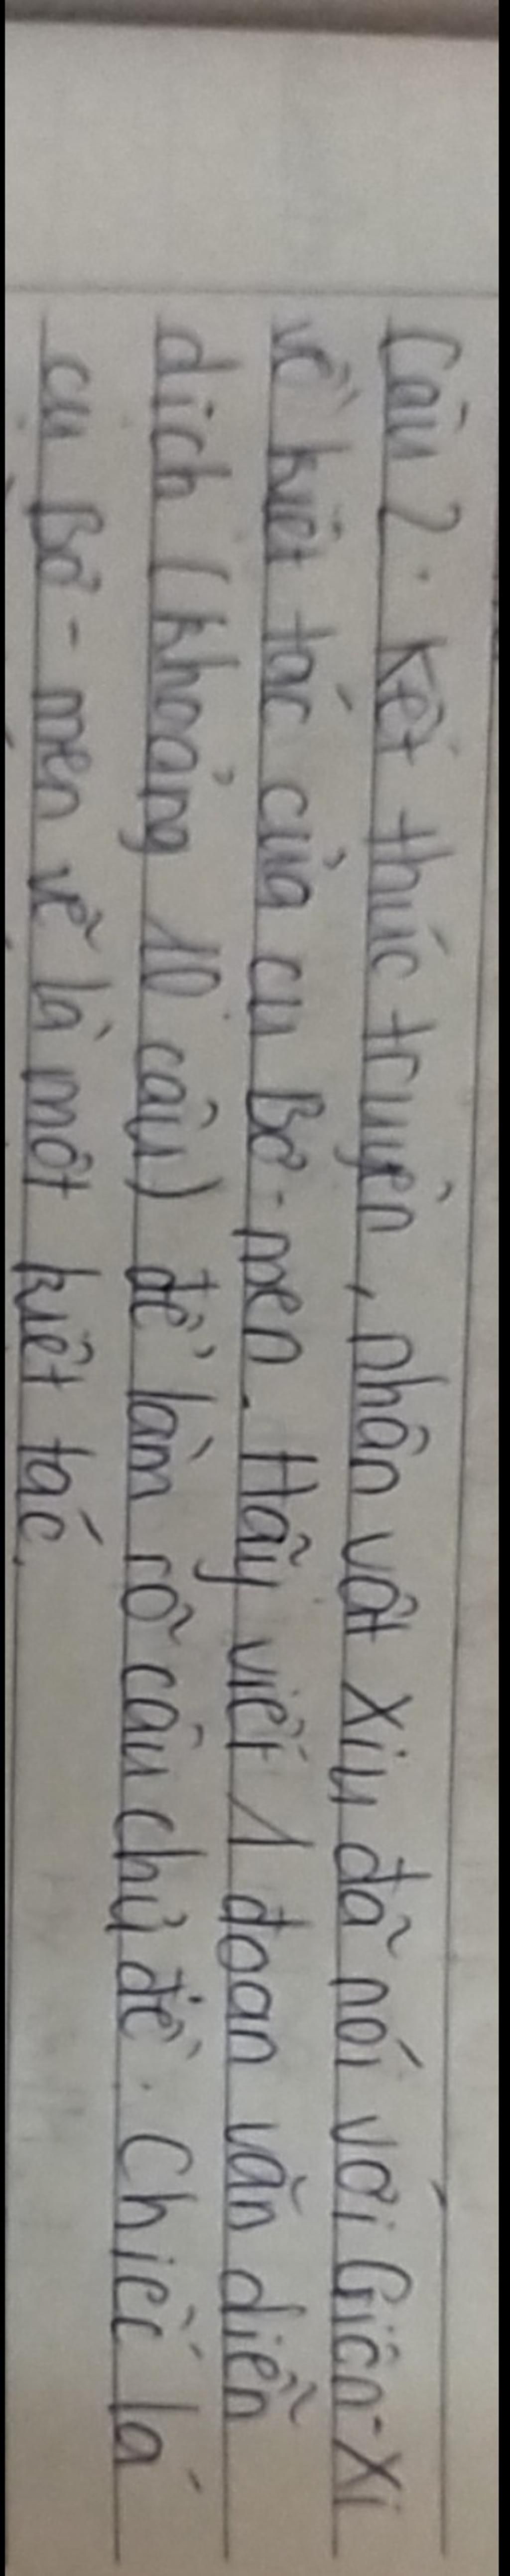 Câu 2. Kết thúc truyện, nhân vật Xiu đã nói với Giôn-Xi
về kiệt tác của cụ Bơ-men. Hãy viết 1 đoạn văn diễn
dịch (khoảng 10 câu) để làm rõ câu chủ đề. Chiếc lá
cụ Bơ-men vẽ là một kiệt tác.